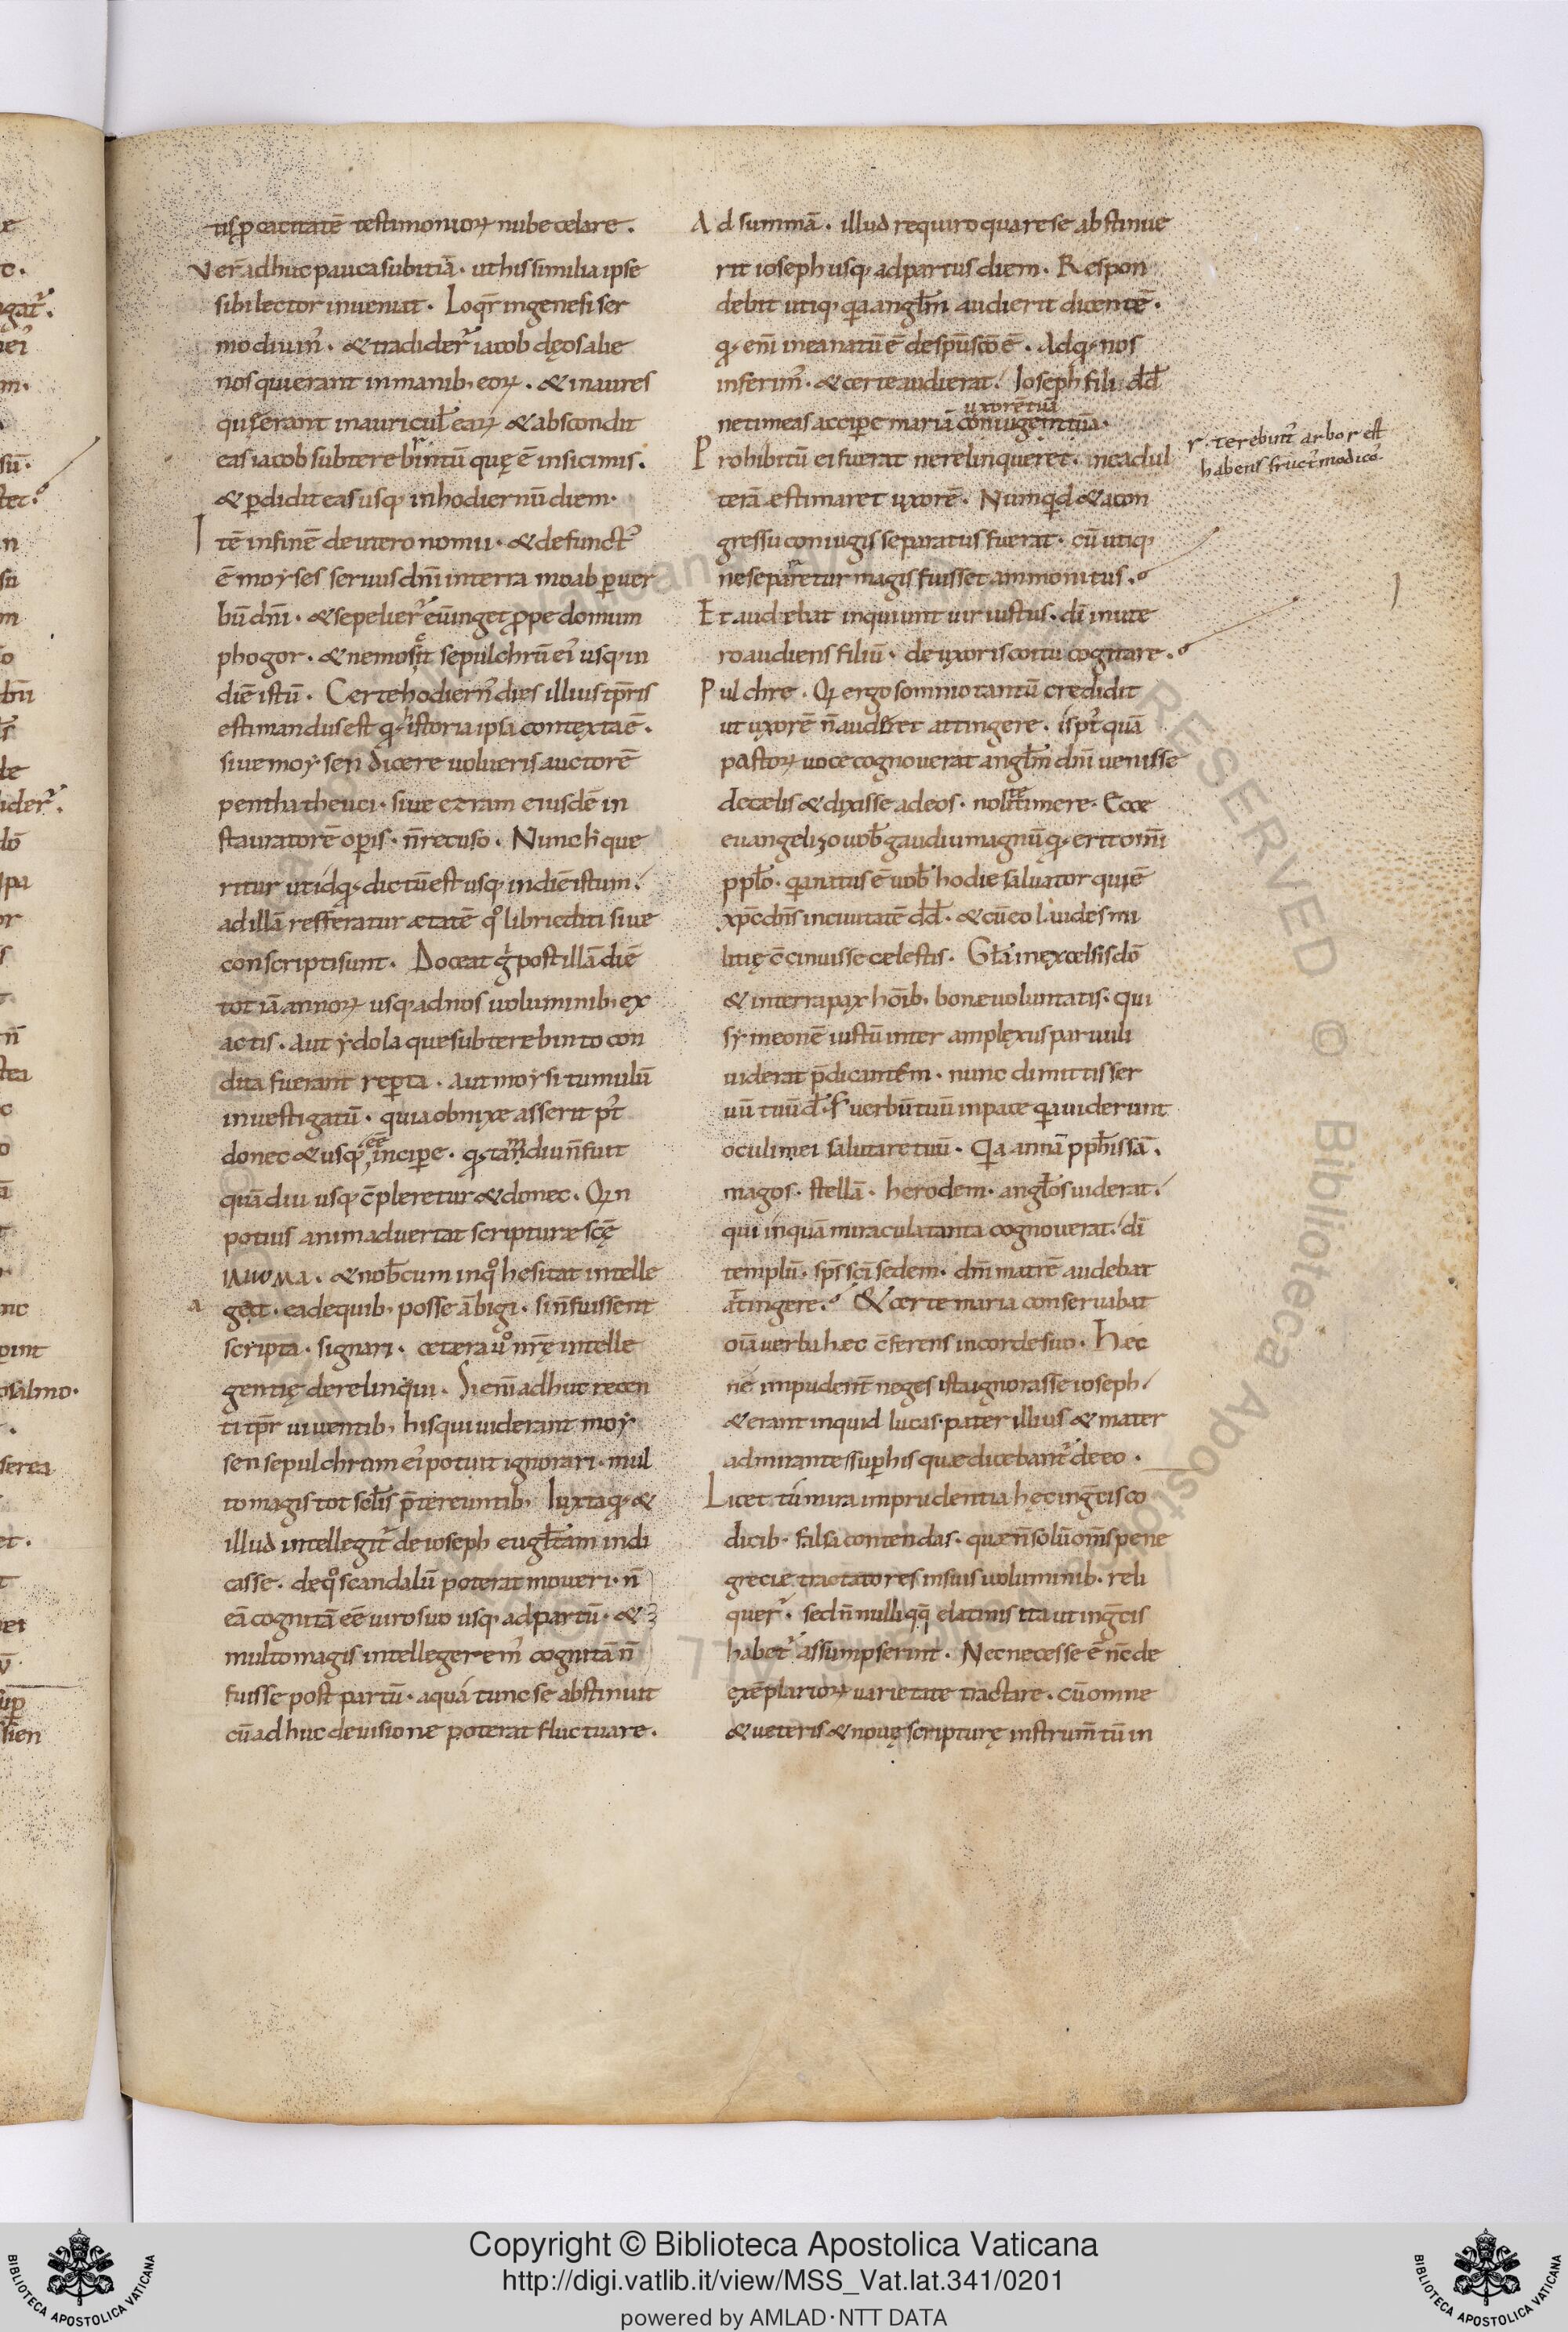 tisp̱cacitatē testimoniorꝝ nube celare.
Ver̄ adhuc pauca subitiā. ut his similia ipse
sibi lector inveniat. Loqr̄ in genesi ser
mo divin᷒. & tradider̄ iacob dęos alie
nos qui erant in manib; eorꝝ. & inaures
qu̧ erant in auricul̄ earꝝ & abscondit
eas iacob subter ebintū quę ē in sicimis.
& ꝑdidit eas usq; in hodiernū diem.
Itē in fine deutero nomii. & defunct᷒
ē moyses servus dn̄i in terra moab ꝑ ver
bū dn̄i. & sepelier̄ eū in get ꝓpe domum
phogor. & nemo scit sepulchrū ei᷒ usq; in
diē istū. Certe hodiern᷒ dies illius tp̄ris
estimandus est qͦ historia ipsa contęxta ē.
sive moysen dicere volueris auctorē
penthatheuci. sive ezram eiusdē in
stauratorē oꝑis. n̄ recuso. Nunc h̄ que
ritur ut id qͦ dictū est usq; in diē istum.
ad illā refferatur ætatē qͦ libri editi sive
conscripti sunt. Doceat g̊ post illā diē
tot iā annorꝝ usq; ad nos voluminib; ex
actis. aut ydola que subterebinto con
dita fuerant reꝑta. aut moysi tumulū
investigatū. quia obnixe asserit p̄t
donec & usq; eē inciꝑe. qͦ tamdiu n̄ fuit
quādiu usq; c̄pleretur & donec. Qn̄
potius animadvertat scripturæ scę̄
. & nob̄ cum in qͦ hesitat intelle
gat. ea de quib; posse ābigi. si n̄ fuissent
scripta. signari. cetera vͦ nr̄ę intelle
gentię derelinqui. Si eni adhuc recen
ti tp̄r viventib; his qui viderant moy
sen sepulchrum ei᷒ potuit ignorari. mul
to magis tot sclīs p̄tereuntib; Iuxta qͦ &
illud intellegit᷒ de ioseph eugl̄tam indi
casse. de qͦ scandalū poterat moveri. n̄
eā cognitā eē viro suo usq; ad partū. &
multo magis intellegerem᷒ cognitā n̄
fuisse post partū. a qua tunc se abstinuit
cū adhuc de visione poterat fluctuare.
Ad summā. illud requiro quare se abstinue
rit ioseph usq; ad partus diem. Respon
debit utiq; q̄a angl̄m audierit dicentē.
qͦ eni in ea natū ē de spū sc̄o ē. Ad qͦ nos
inferim᷒. & certe audierat. Ioseph fili dd̄
ne timeas acciꝑe mariā coniugem tuā.
uxorē tuā
Prohibitū ei fuerat ne relinqueret. nec adul
terā æstimaret uxorē. Numqd & a con
gressu coniugis separatus fuerat. cū utiq;
ne separetur magis fuisset ammonitus.
Et audebat inquiunt vir iustus. dī in ute
ro audiens filiū. de uxoris coitu cogitare.
Pulchre. Qi ergo somnio tantū credidit
ut uxorē n̄ auderet attingere. is p᷒t quā
pastorꝝ voce cognoverat angl̄m dn̄i venisse
de cælis & dixisse ad eos. nolite timere. Ecce
evangelizo vob̄ gaudiu magnū qͦ erit omī
ppl̄o. q̄a natus ē vob̄ hodie salvator qui ē
xp̄c dn̄s in civitatē dd̄. & cū eo laudes mi
litię c̄cinuisse celestis. Gl̄a in excelsis dō
& in terra pax hoīb; bonæ voluntatis. qui
symeonē iustū inter amplęxus parvuli
viderat p̄dicantem. nunc dimittis ser
vū tuū d̄. s̄ verbū tuū in pace q̄a viderunt
oculi mei salutare tuū. Q̄a annā pph̄issā.
magos. stellā. herodem. angl̄os viderat.
qui inquā miracula tanta cognoverat. dī
templū. sp̄s sc̄i sedem. dn̄i matrē audebat
attingere. & certe maria conservabat
oīa verba hæc c̄ferens in corde suo. Hæc
ne impudent᷒ neges ista ignorasse ioseph.
& erant inquid lucas. pater illius & mater
admirantes suꝑ his quæ dicebant᷒ de eo.
Licet tu mira imprudentia hęc in gr̄cis co
dicib. falsa contendas. quæ n̄ solū om̄s pene
grecię tractatores in suis voluminib. reli
quer̄. sed n̄nulli qq̄ e latinis ita ut in gr̄cis
habet᷒ assumpserint. Nec necesse ē nc̄ de
exēplariorꝝ varietate tractare. cū omne
& veteris & novę scripturę instrum̄tū in
r. terebint᷒ arbor est
habens fruct᷒ modico᷒.
Copyright © Biblioteca Apostolica Vaticana
http://digi.vatlib.it/view/MSS_Vat.lat.341/0201
powered by AMLAD·NTT DATA
BIBLIOTECA APOSTOLICA VATICANA
BIBLIOTECA APOSTOLICA VATICANA